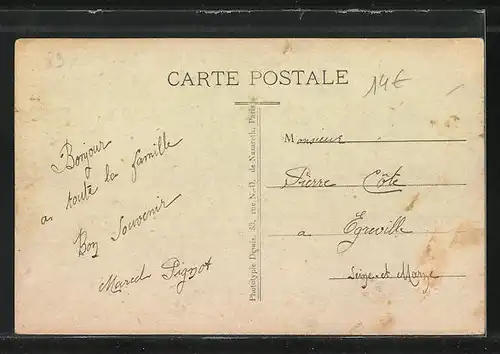 89
CARTE POSTALE
14€
Bonjour
a toute la famille
Bon Souvenir
Marcel Pignot
Phototypie Depuis, 53, rue N.-D. de Nazareth, Paris
Monsieur
Pierre Côte
a Egreville
Seine et Marne